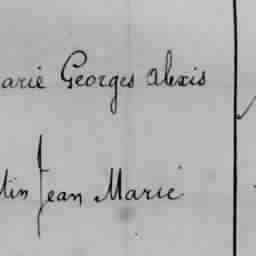 arie Georges Alexis
tin Jean Marie